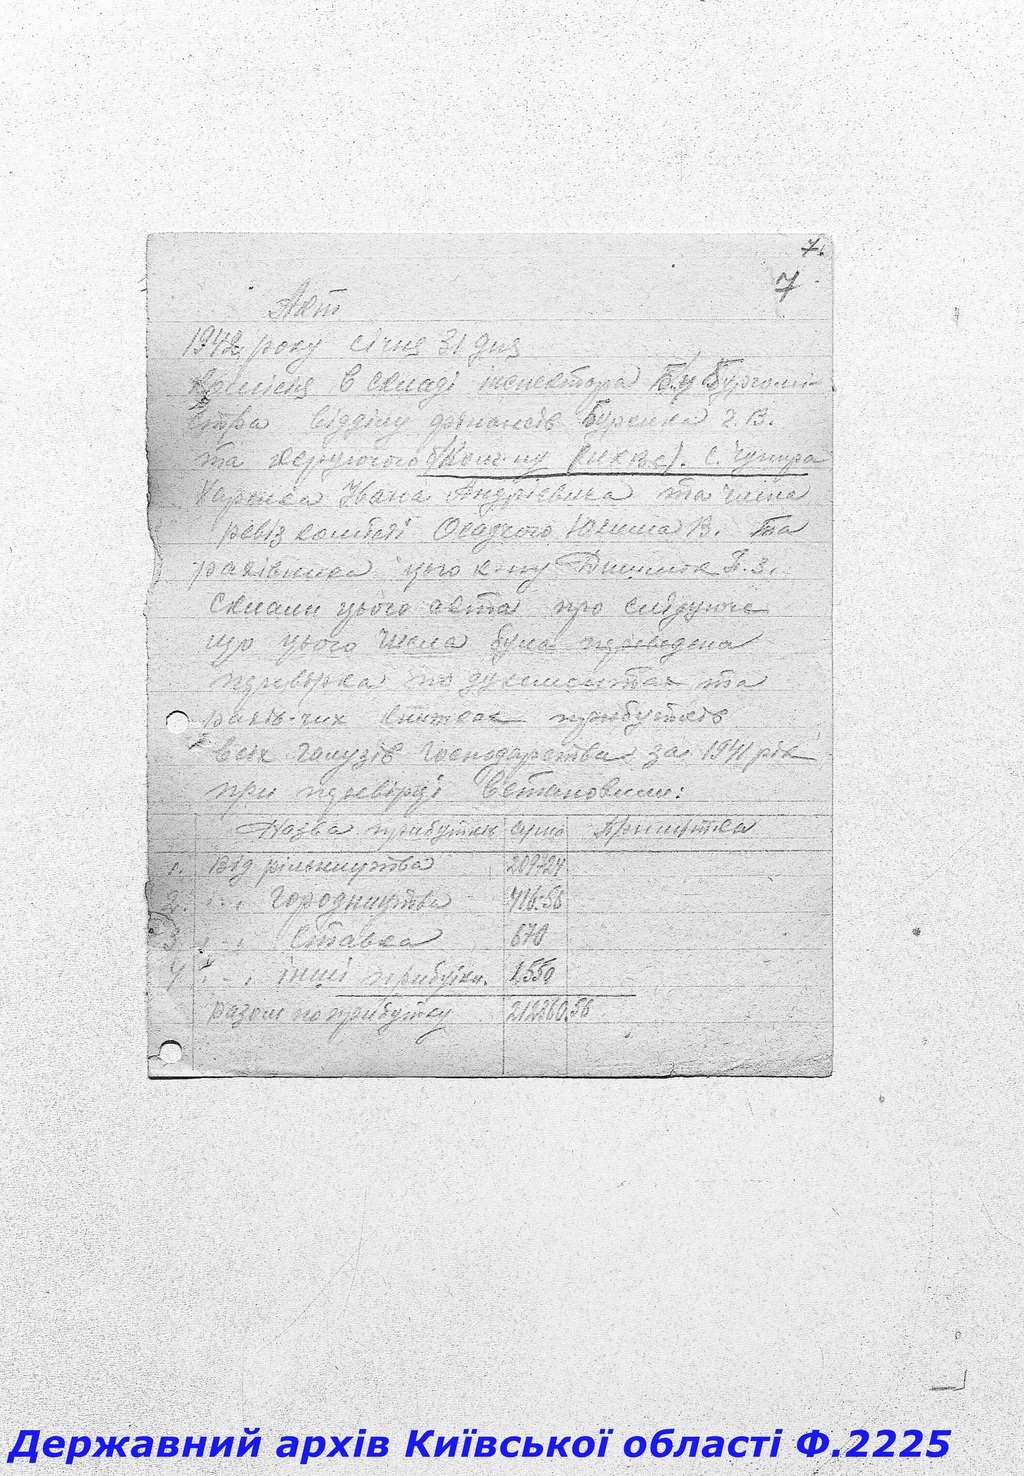 7.
7
Акт
1942 року січня 31 дня
Комісія в складі інспектора Б.у Бургомі-
стра відділу фінансів Буренка Г.В.
та керуючого (НКВС). с. Чупира
Харенка Івана Андрієвича та члена
ревіз комісії Осадчого Юхима В. та
рахівника цього к-пу П.З.
склали цього акта про слідуюче
що цього числа була переведена
перевірка по документах та
рахів-чих книжках прибутків
всіх галузів господарства за 1941 рік
при перевірці встановили:
Назва прибутків сума Примітка
1. Від рільництва 209424
2. " - " Городництва 716-56
3 " - " Ставка 670
4 " - " інші прибутки. 1550
разом по прибутку 212360.56
Державний архів Київської області Ф.2225